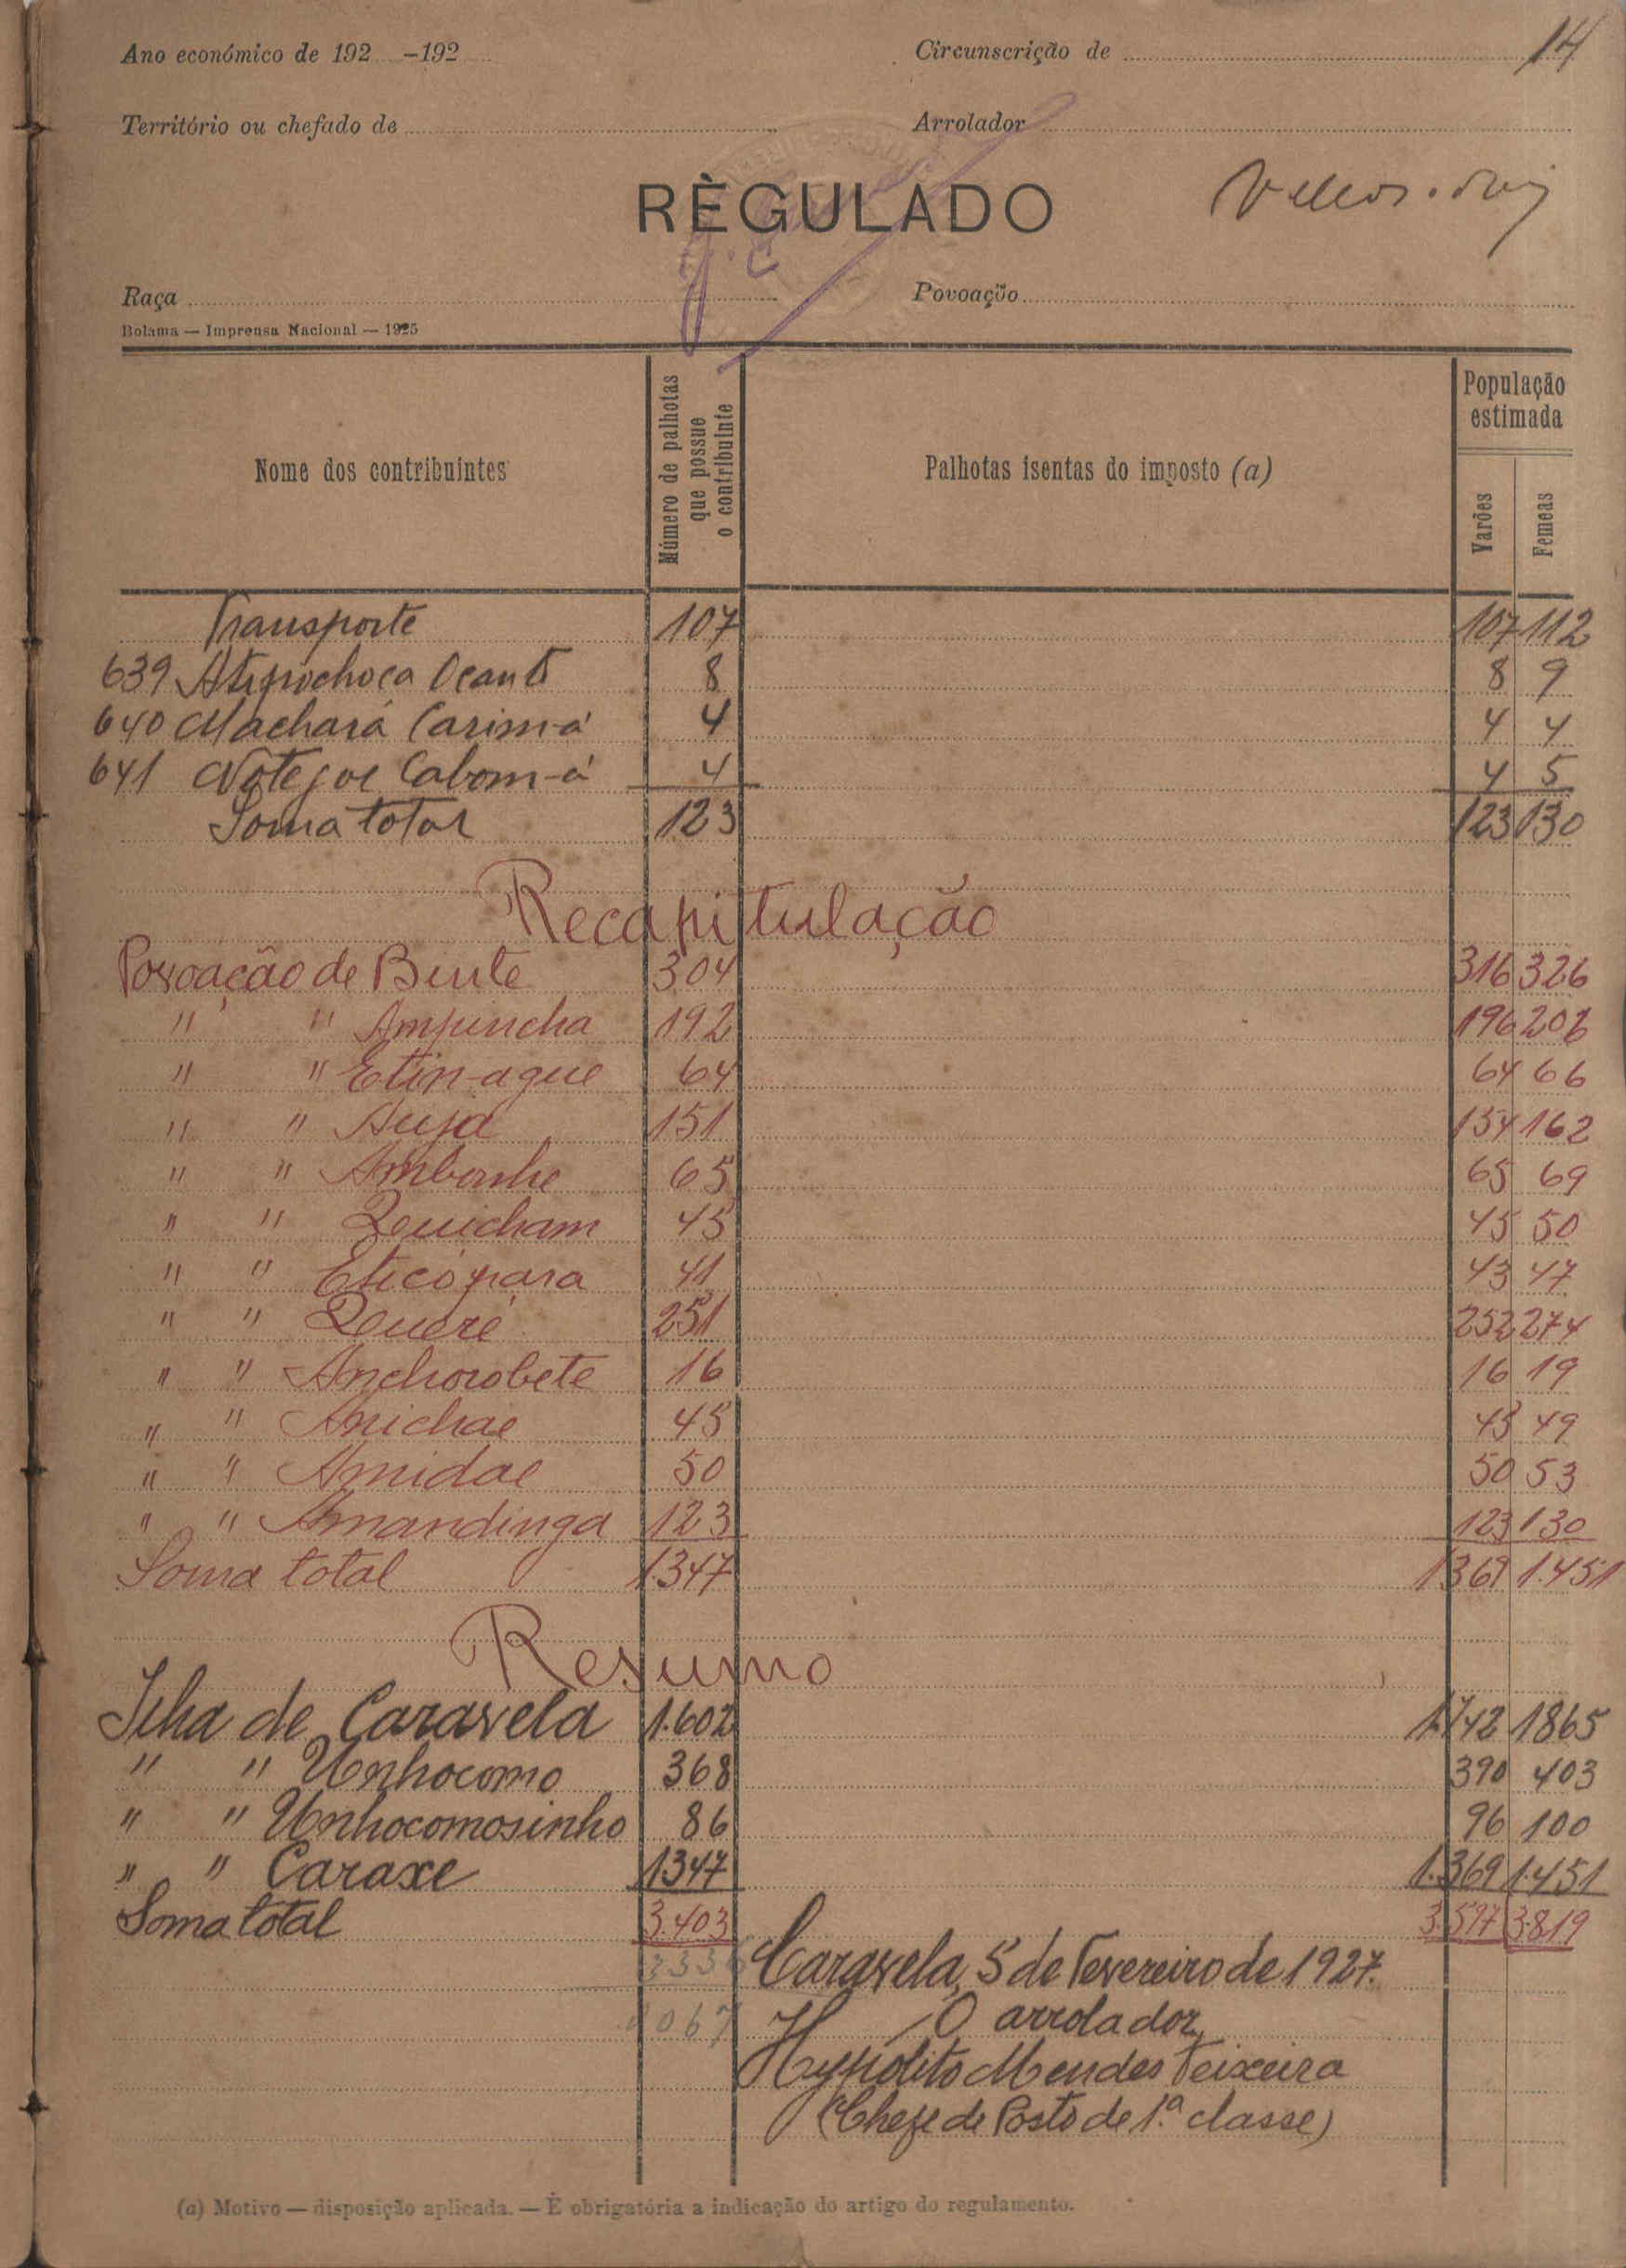 14
Ano económico de 192 -192 Circunscrição de
Território ou chefado de Arrolador
RÈGULADO
Raça Povoação
Bolama — Imprensa Nacional — 1925
Nome dos contribuintes Número de palhotas que possue o contribuinte Palhotas isentas do imposto (a) População estimada Varões Femeas
Transporte 107 107 112
639 8 8 9
640 Machará Carim-á 4 4 4
641 Cabom-á 4 4 5
Soma total 123 123 130
Recapitulação
Povoação de Binte 304 316 326
" " Ampincha 192 196 206
" " Etin-ague 64 64 66
" " 151 154 162
" " Ambanhe 65 65 69
" " 45 45 50
" " Eticópara 41 43 47
" " 251 252 274
" " Anchorobete 16 16 19
" " Anichae 45 45 49
" " Amidae 50 50 53
" " Amandinga 123 123 130
Soma total 1347 1369 1.451
Resumo
Ilha de Caravela 1.602 1.742 1865
" " Unhocomo 368 390 403
" " Unhocomosinho 86 96 100
" " Caraxe 1347 1.369 1.451
Soma total 3.403 3.597 3.819
Caravela, 5 de Fevereiro de 1927.
O arrolador
Hypolito Mendes Teixeira
(Chefe de Posto de 1.ª classe)
(a) Motivo — disposição aplicada. — É obrigatória a indicação do artigo do regulamento.